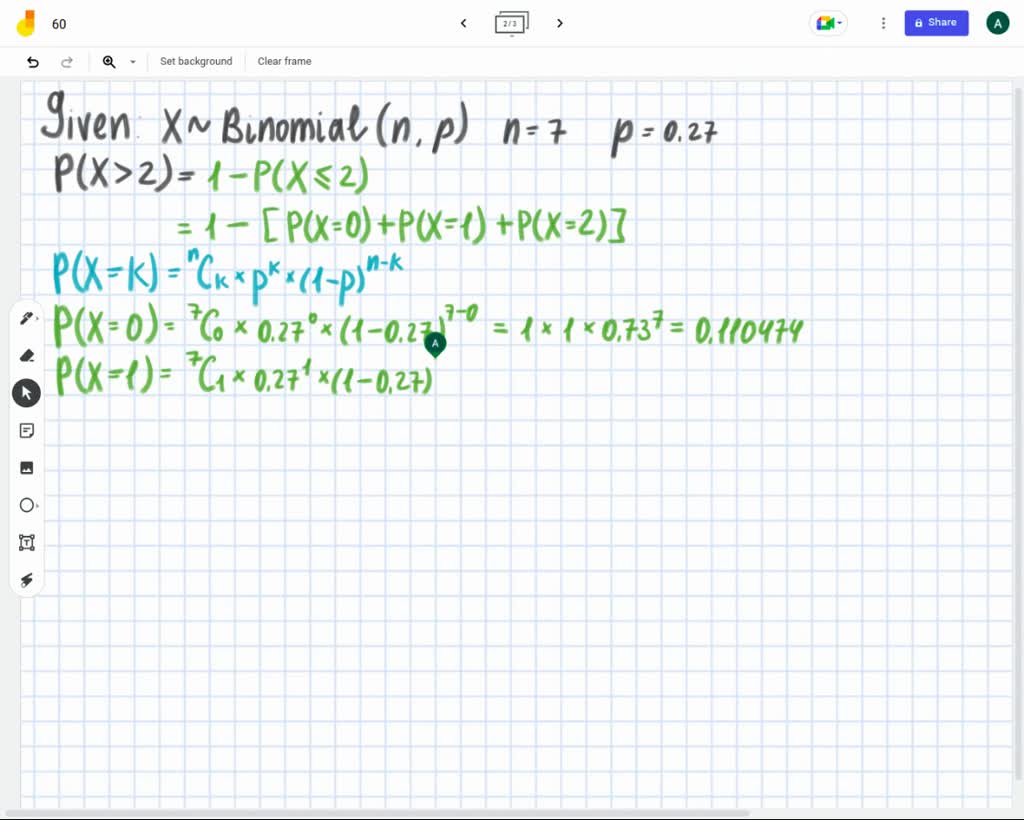 60
2/3
Share
A
Set background
Clear frame
Given: X ~ Binomial (n, p) n = 7 p = 0.27
P(X > 2) = 1 - P(X ⩽ 2)
= 1 - [P(X=0) + P(X=1) + P(X=2)]
P(X=k) = ⁿCₖ × pᵏ × (1-p)ⁿ⁻ᵏ
P(X=0) = ⁷C₀ × 0.27⁰ × (1-0.27)⁷⁻⁰ = 1 × 1 × 0.73⁷ = 0.110474
A
P(X=1) = ⁷C₁ × 0.27¹ × (1-0.27)
T